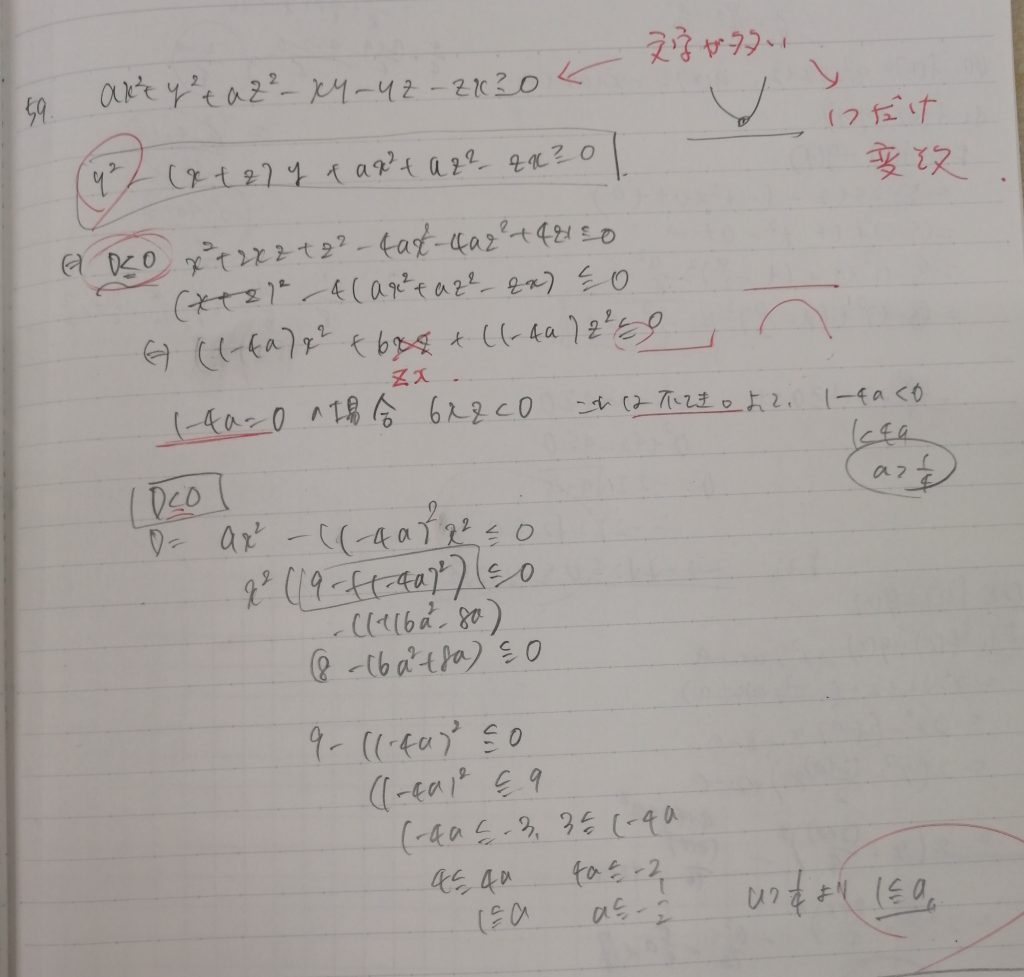 文字が多い
59. ax²+y²+az²-xy-yz-zx≧0
1つだけ
変数
y²-(x+z)y+ax²+az²-zx≧0
⇔ D≦0 x²+2xz+z²-4ax²-4az²+4zx≦0
(x+z)²-4(ax²+az²-zx)≦0
⇔ (1-4a)x²+6xz+(1-4a)z²≦0
zx.
1-4a=0の場合 6xz<0 これは不適。よって、1-4a<0
1<4a
a>1/4
D≦0
D= 9x²-(1-4a)²x²≦0
x²(9-(1-4a)²)≦0
-(1+16a²-8a)
(8-16a²+8a)≦0
9-(1-4a)²≦0
(1-4a)²≦9
1-4a≦-3, 3≦1-4a
4≦4a 4a≦-2
1≦a a≦-1/2 a>1/4より 1≦a。